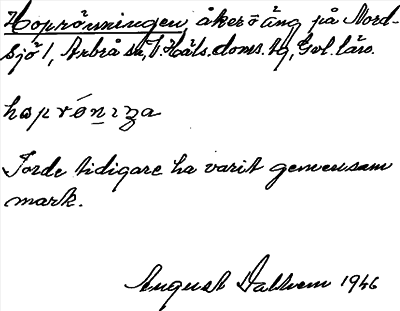 Hoprönningen, åker o äng på Nord-
sjö 1, Arbrå sn, V. Häls. doms. hg, Gvl. län.
hoprǿnıza
Torde tidigare ha varit gemensam
mark.
August Dalhem 1946